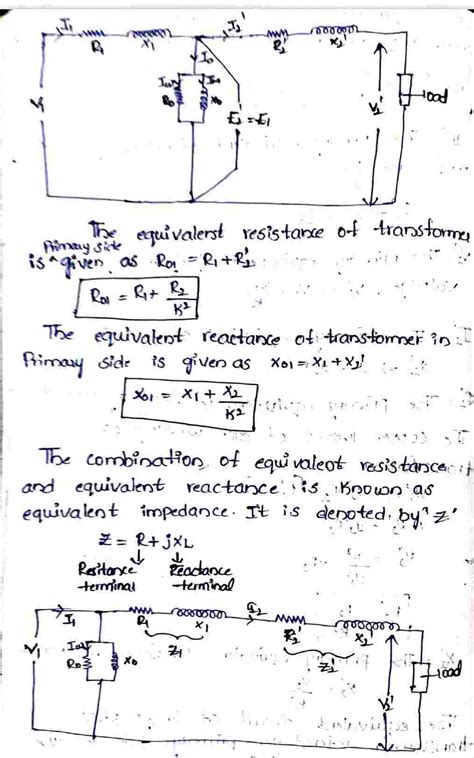 I₁ R₁ X₁ I₂' R₂' X₂'
I₀
R₀ X₀ E₂' = E₁ V₂' load
The equivalent resistance of transformer
Primary side
is ^ given as R₀₁ = R₁ + R₂'
R₀₁ = R₁ + R₂/K²
The equivalent reactance of transformer in
Primary side is given as X₀₁ = X₁ + X₂'
X₀₁ = X₁ + X₂/K²
The combination of equivalent resistance
and equivalent reactance is known as
equivalent impedance. It is denoted by 'Z'
Z = R + jXL
Resitance Reactance
terminal terminal
I₁ R₁ X₁ R₂' X₂'
V₁ R₀ X₀ Z₁ Z₂' load
V₂'